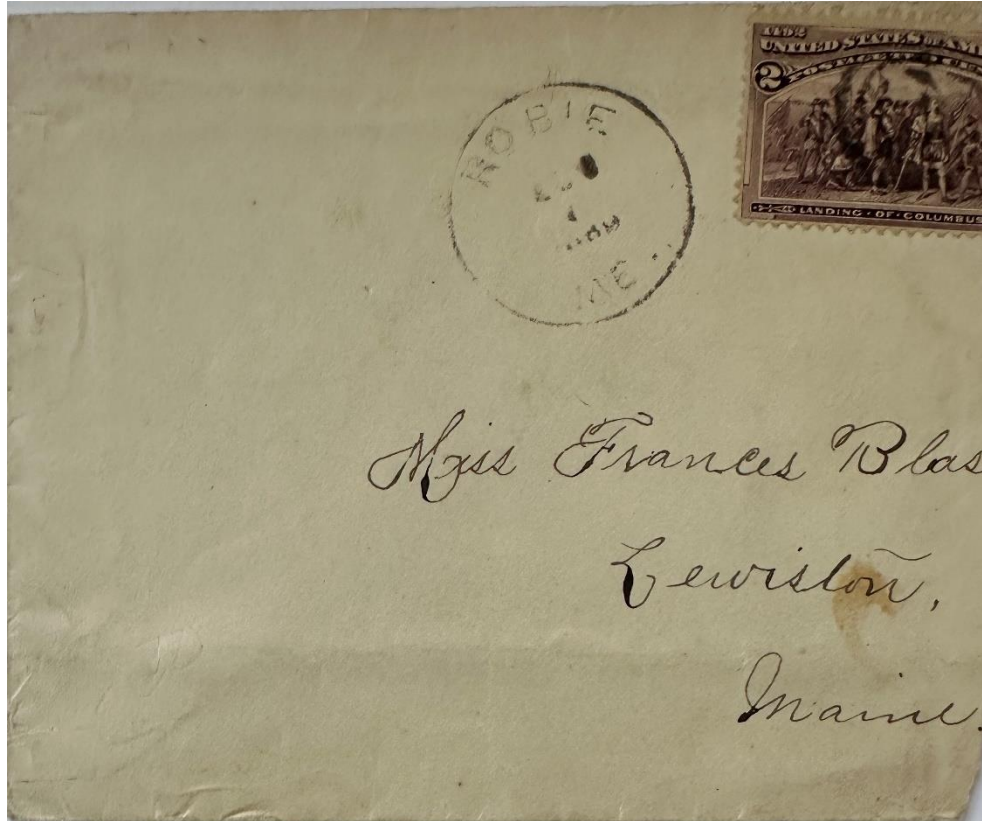 1492
UNITED STATES OF AM
POSTAGE TWO CEN
2
LANDING·OF·COLUMBUS
ROBIE
ME.
Miss Frances Blas
Lewiston,
Maine.